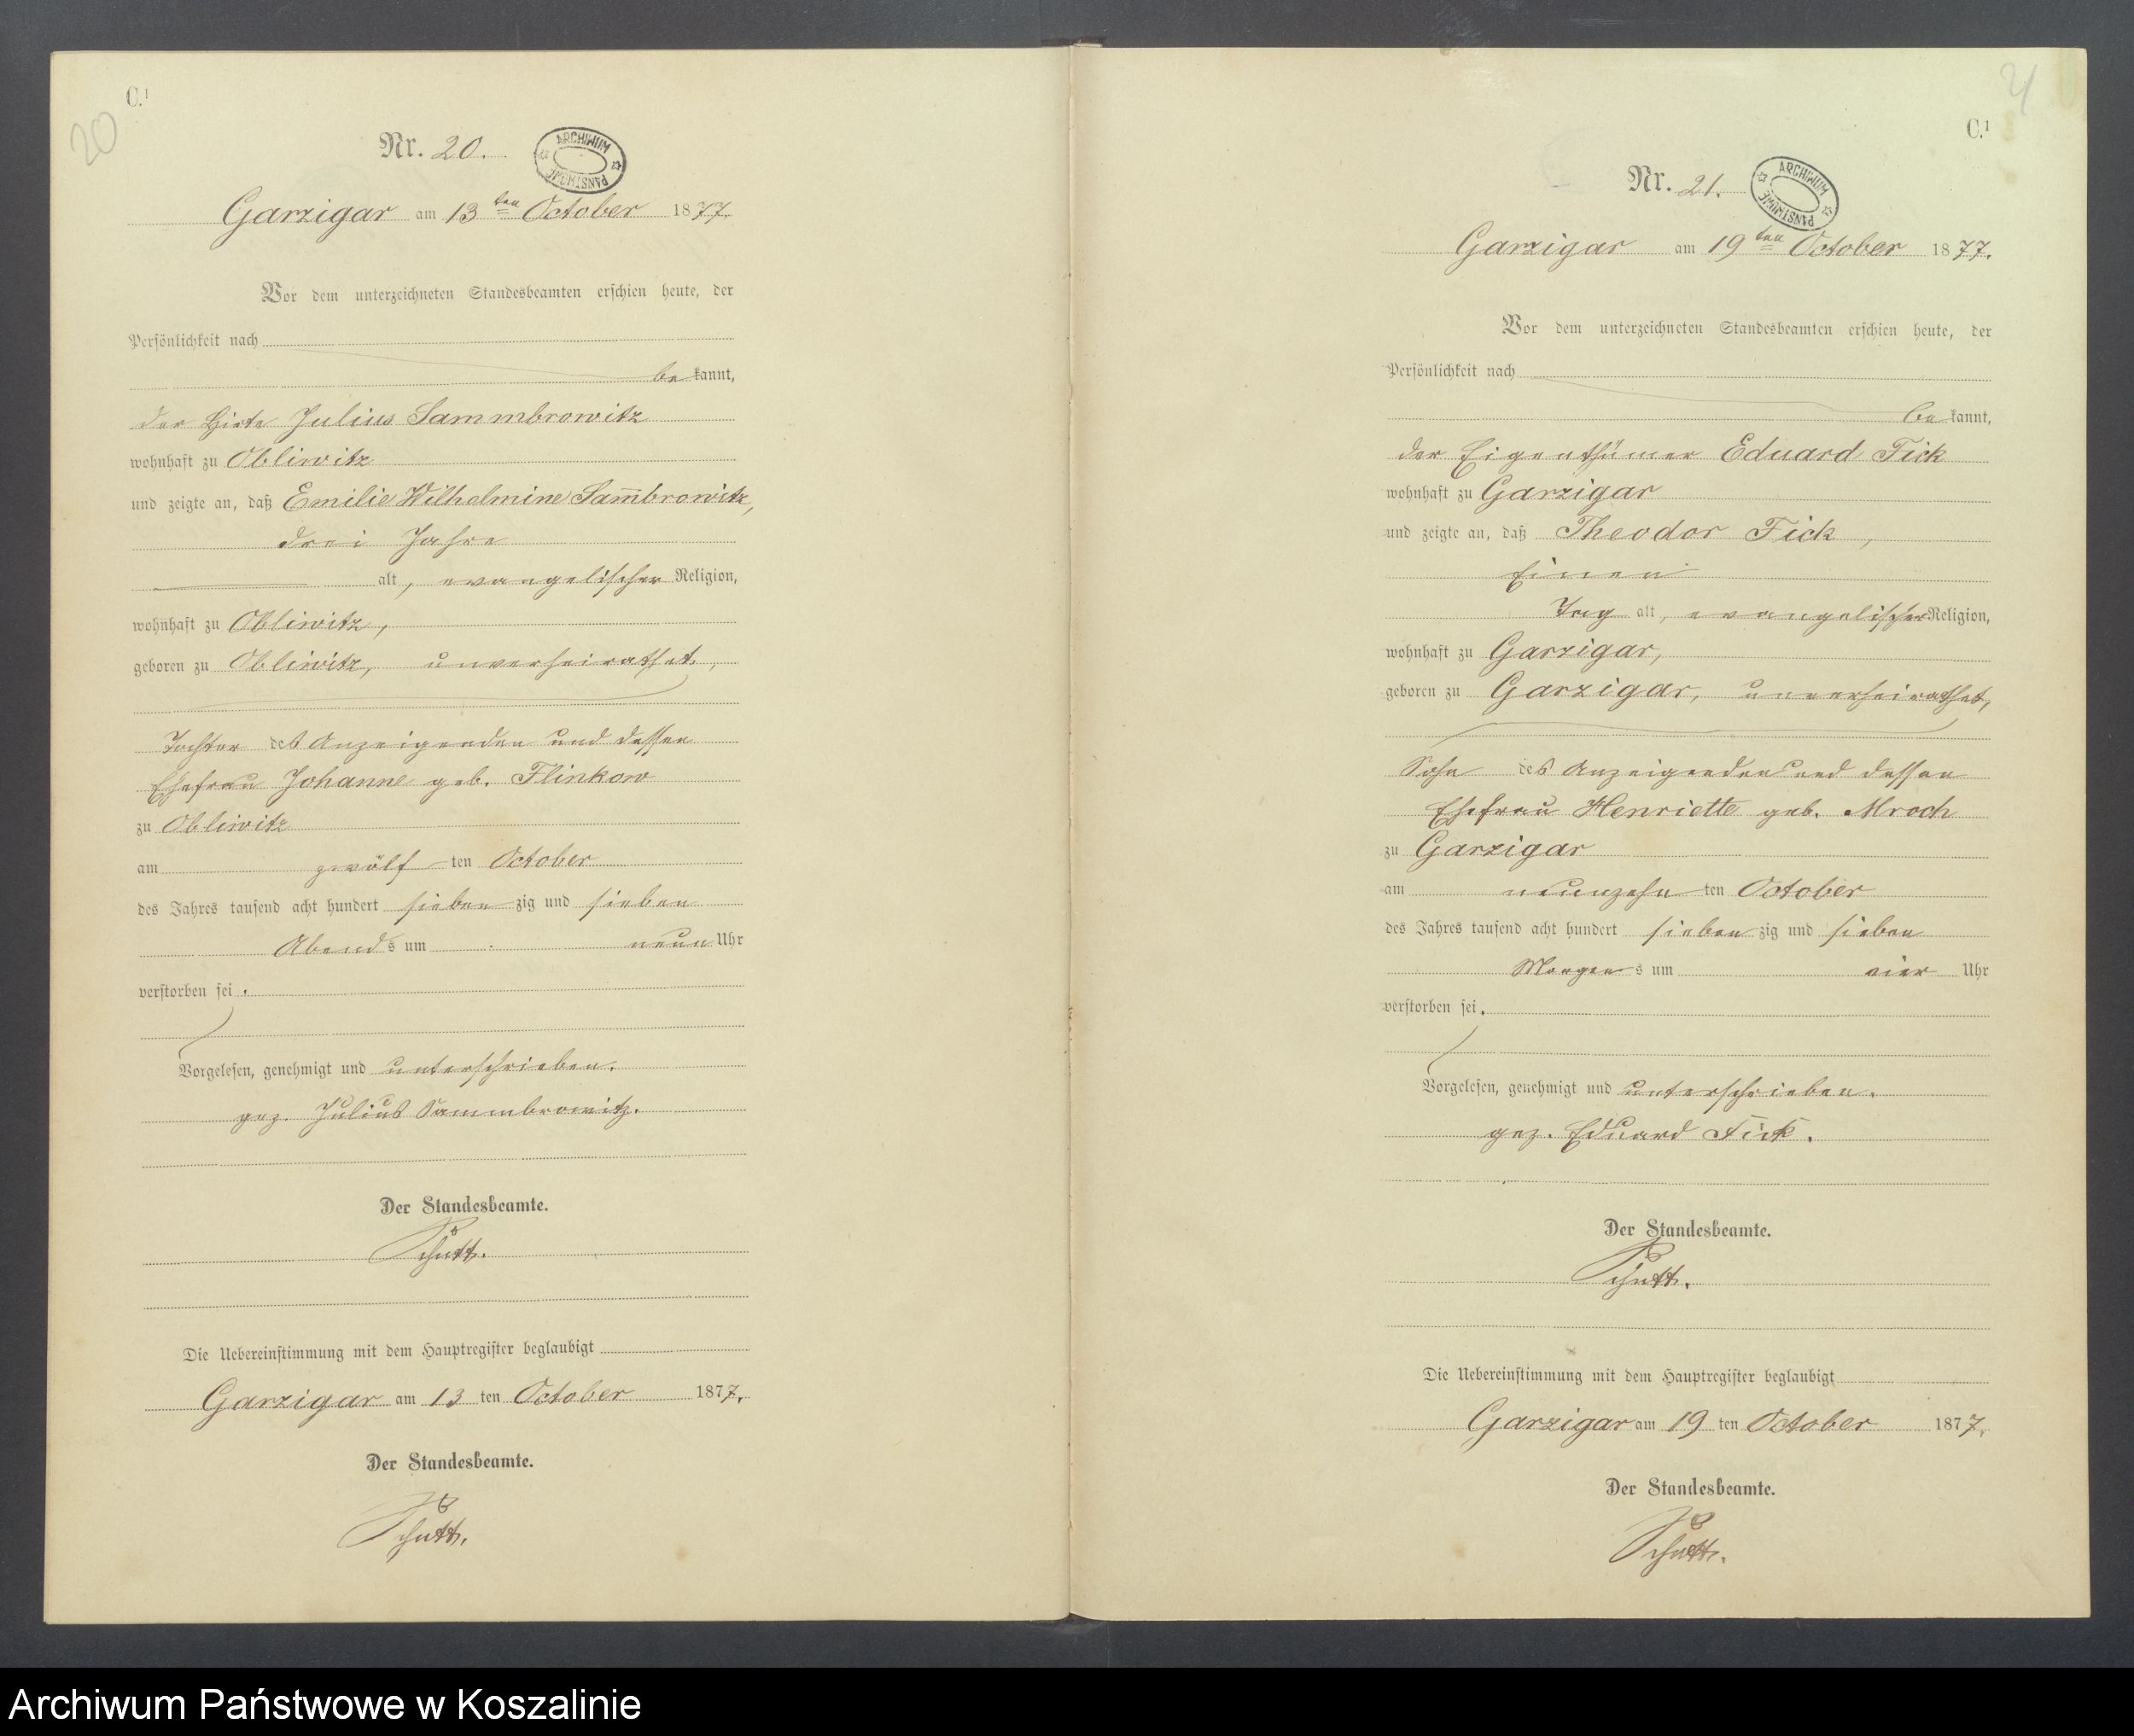 C.¹
20
Nr. 20.
ARCHIWUM PAŃSTWOWE
Garzigar am 13ten October 1877.
Vor dem unterzeichneten Standesbeamten erschien heute, der
Persönlichkeit nach
be kannt,
der Hirte Julius Sammbrowitz
wohnhaft zu Obliwitz
und zeigte an, daß Emilie Wilhelmine Sam̄browitz,
drei Jahre
alt, evangelischer Religion,
wohnhaft zu Obliwitz,
geboren zu Obliwitz, unverheirathet,
Tochter des Anzeigenden und dessen
Ehefrau Johanne geb. Flinkow
zu Obliwitz
am zwölf ten October
des Jahres tausend acht hundert sieben zig und sieben
Abends um neun Uhr
verstorben sei.
Vorgelesen, genehmigt und unterschrieben.
gez. Julius Sammbrowitz.
Der Standesbeamte.
Schütt.
Die Uebereinstimmung mit dem Hauptregister beglaubigt
Garzigar am 13 ten October 1877.
Der Standesbeamte.
Schütt.
21
C.¹
Nr. 21.
ARCHIWUM PAŃSTWOWE
Garzigar am 19ten October 1877.
Vor dem unterzeichneten Standesbeamten erschien heute, der
Persönlichkeit nach
be kannt,
der Eigenthümer Eduard Fick
wohnhaft zu Garzigar
und zeigte an, daß Theodor Fick,
Einen
Tag alt, evangelischer Religion,
wohnhaft zu Garzigar,
geboren zu Garzigar, unverheirathet,
Sohn des Anzeigenden und dessen
Ehefrau Henriette geb. Mroch
zu Garzigar
am neunzehn ten October
des Jahres tausend acht hundert sieben zig und sieben
Morgens um vier Uhr
verstorben sei.
Vorgelesen, genehmigt und unterschrieben.
gez. Eduard Fick.
Der Standesbeamte.
Schütt.
Die Uebereinstimmung mit dem Hauptregister beglaubigt
Garzigar am 19 ten October 1877.
Der Standesbeamte.
Schütt.
Archiwum Państwowe w Koszalinie